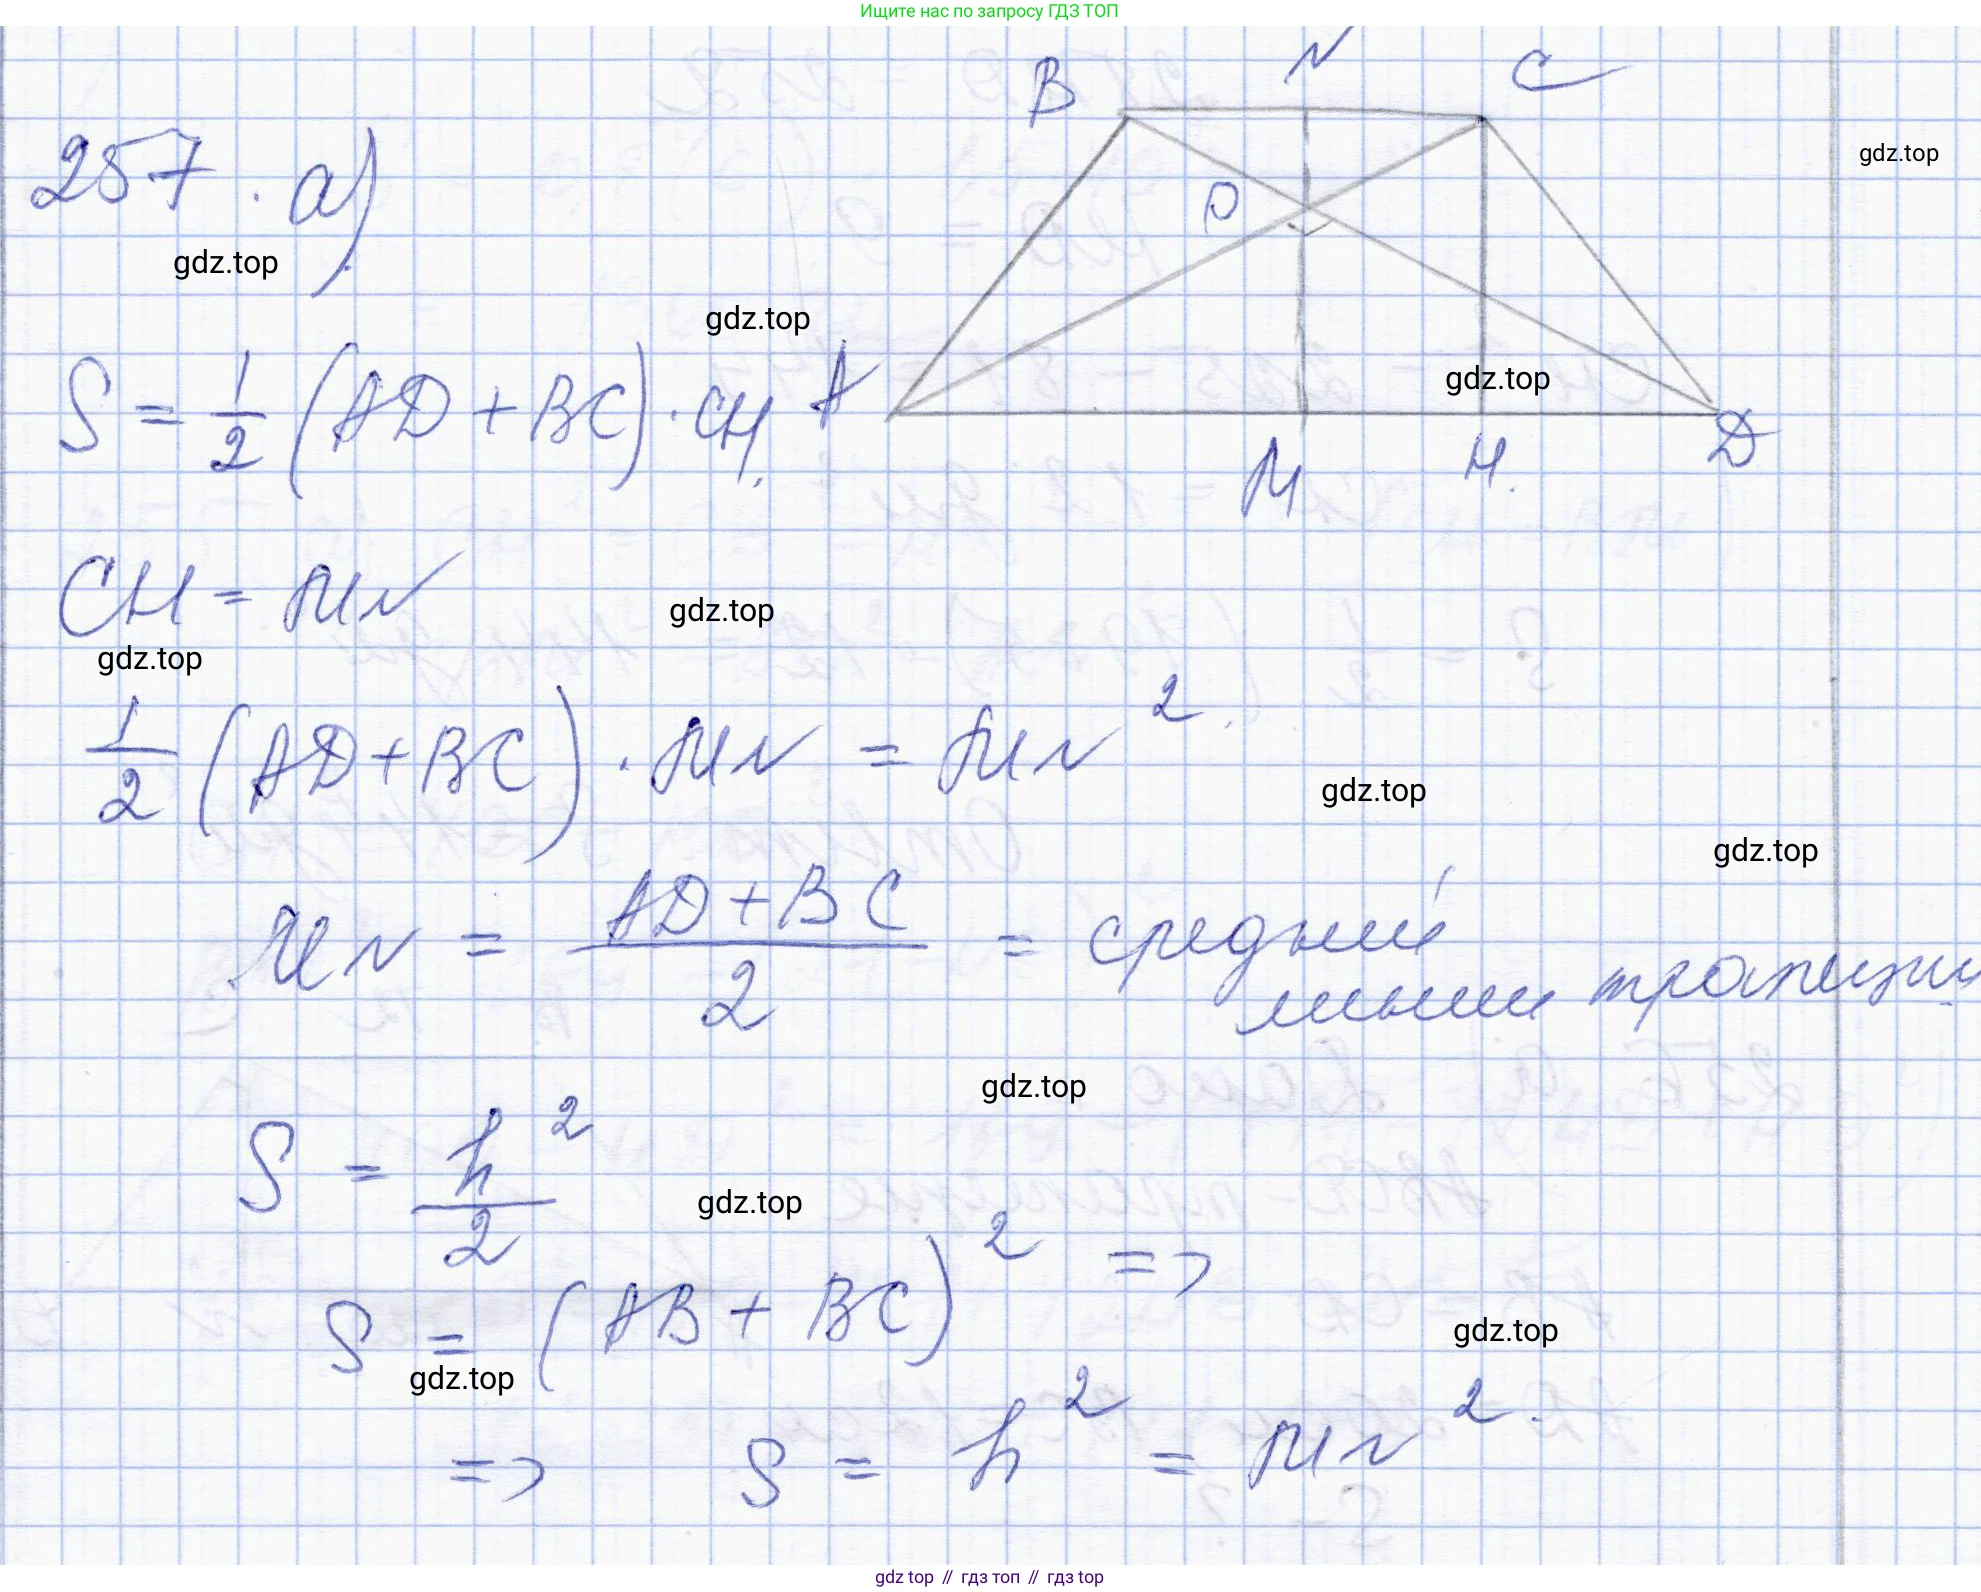 Ищите нас по запросу ГДЗ ТОП
B N C
257. а)
gdz.top
gdz.top
O
gdz.top
gdz.top
S = 1/2 (AD + BC) · CH,
A
M H. D
CH = MN
gdz.top
gdz.top
1/2 (AD + BC) · MN = MN²
gdz.top
gdz.top
MN = (AD + BC)/2 = средней
линии трапеции
gdz.top
S = h²/2
gdz.top
S = (AB + BC)² =>
gdz.top
gdz.top
=> S = h² = MN².
gdz top // гдз топ // гдз top